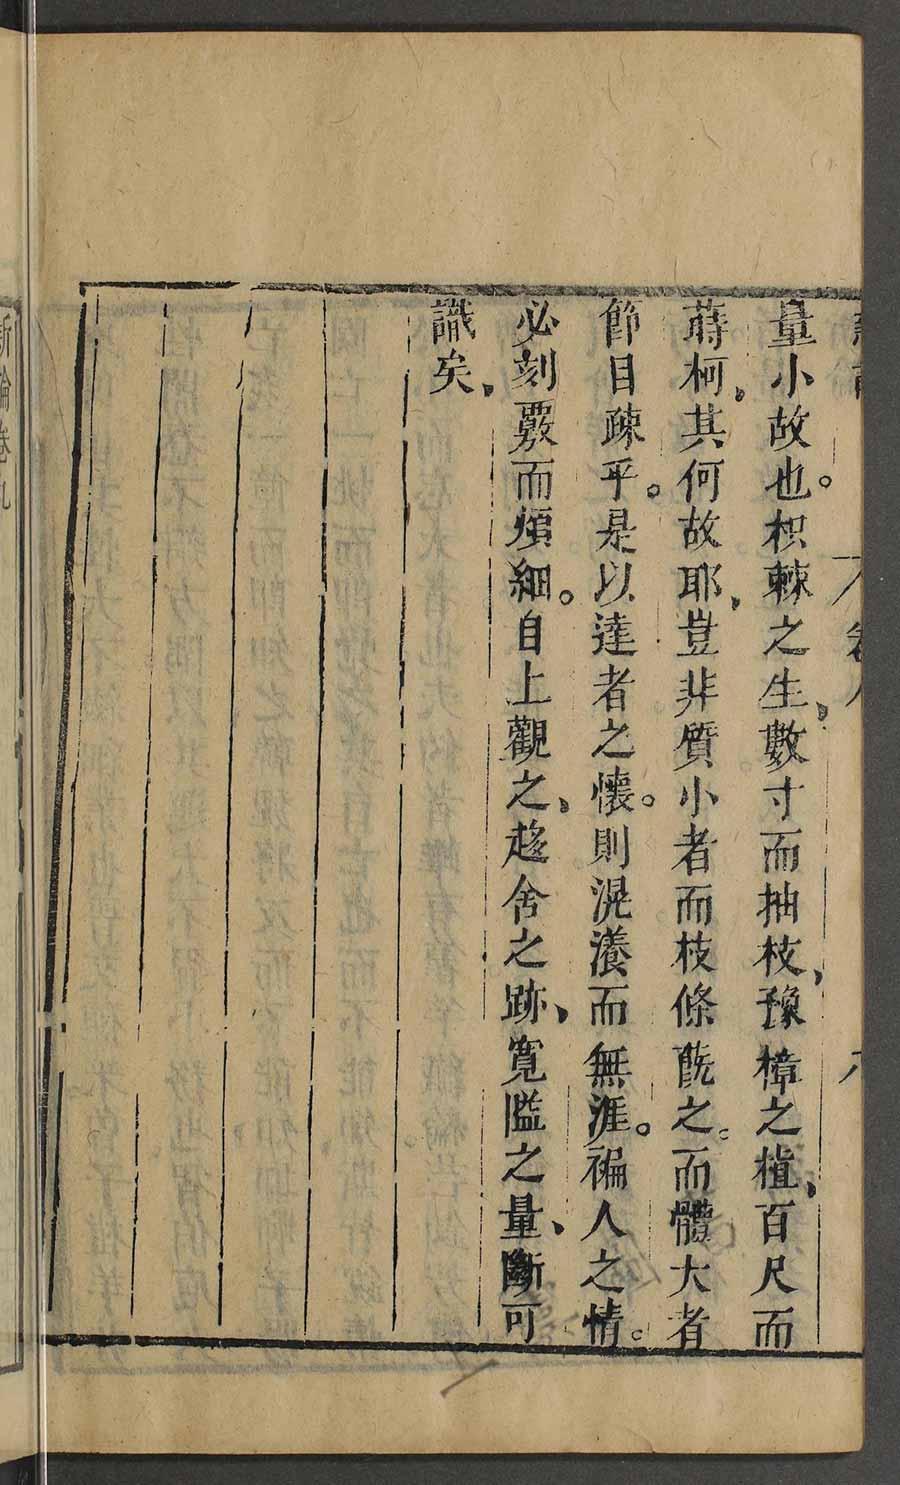 卷八
量小故也。枳棘之生、數寸而抽枝、豫樟之植、百尺而
蒔柯、其何故耶、豈非質小者而枝條旣之。而體大者
節目疎乎。是以達者之懷。則滉瀁而無涯。褊人之情。
必刻覈而煩細。自上觀之、趍舍之跡、寬隘之量、斷可
識矣、
新論卷九